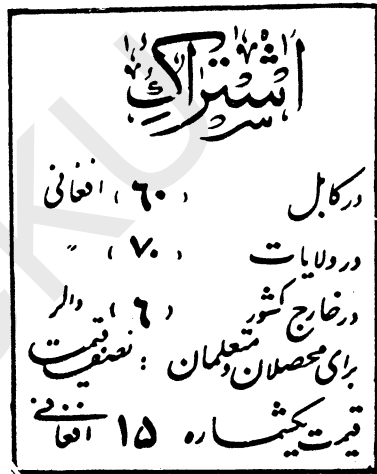 اشتراک
درکابل (٦٠) افغانی
درولایات (٧٠) "
درخارج کشور (٦) دالر
برای محصلان و متعلمان : نصف قیمت
قیمت یکشماره ١٥ افغانی